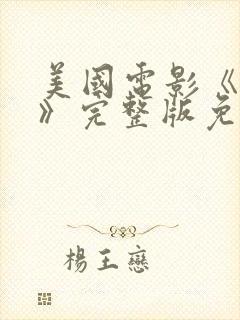 美國電影《
》完整版免
楊王戀